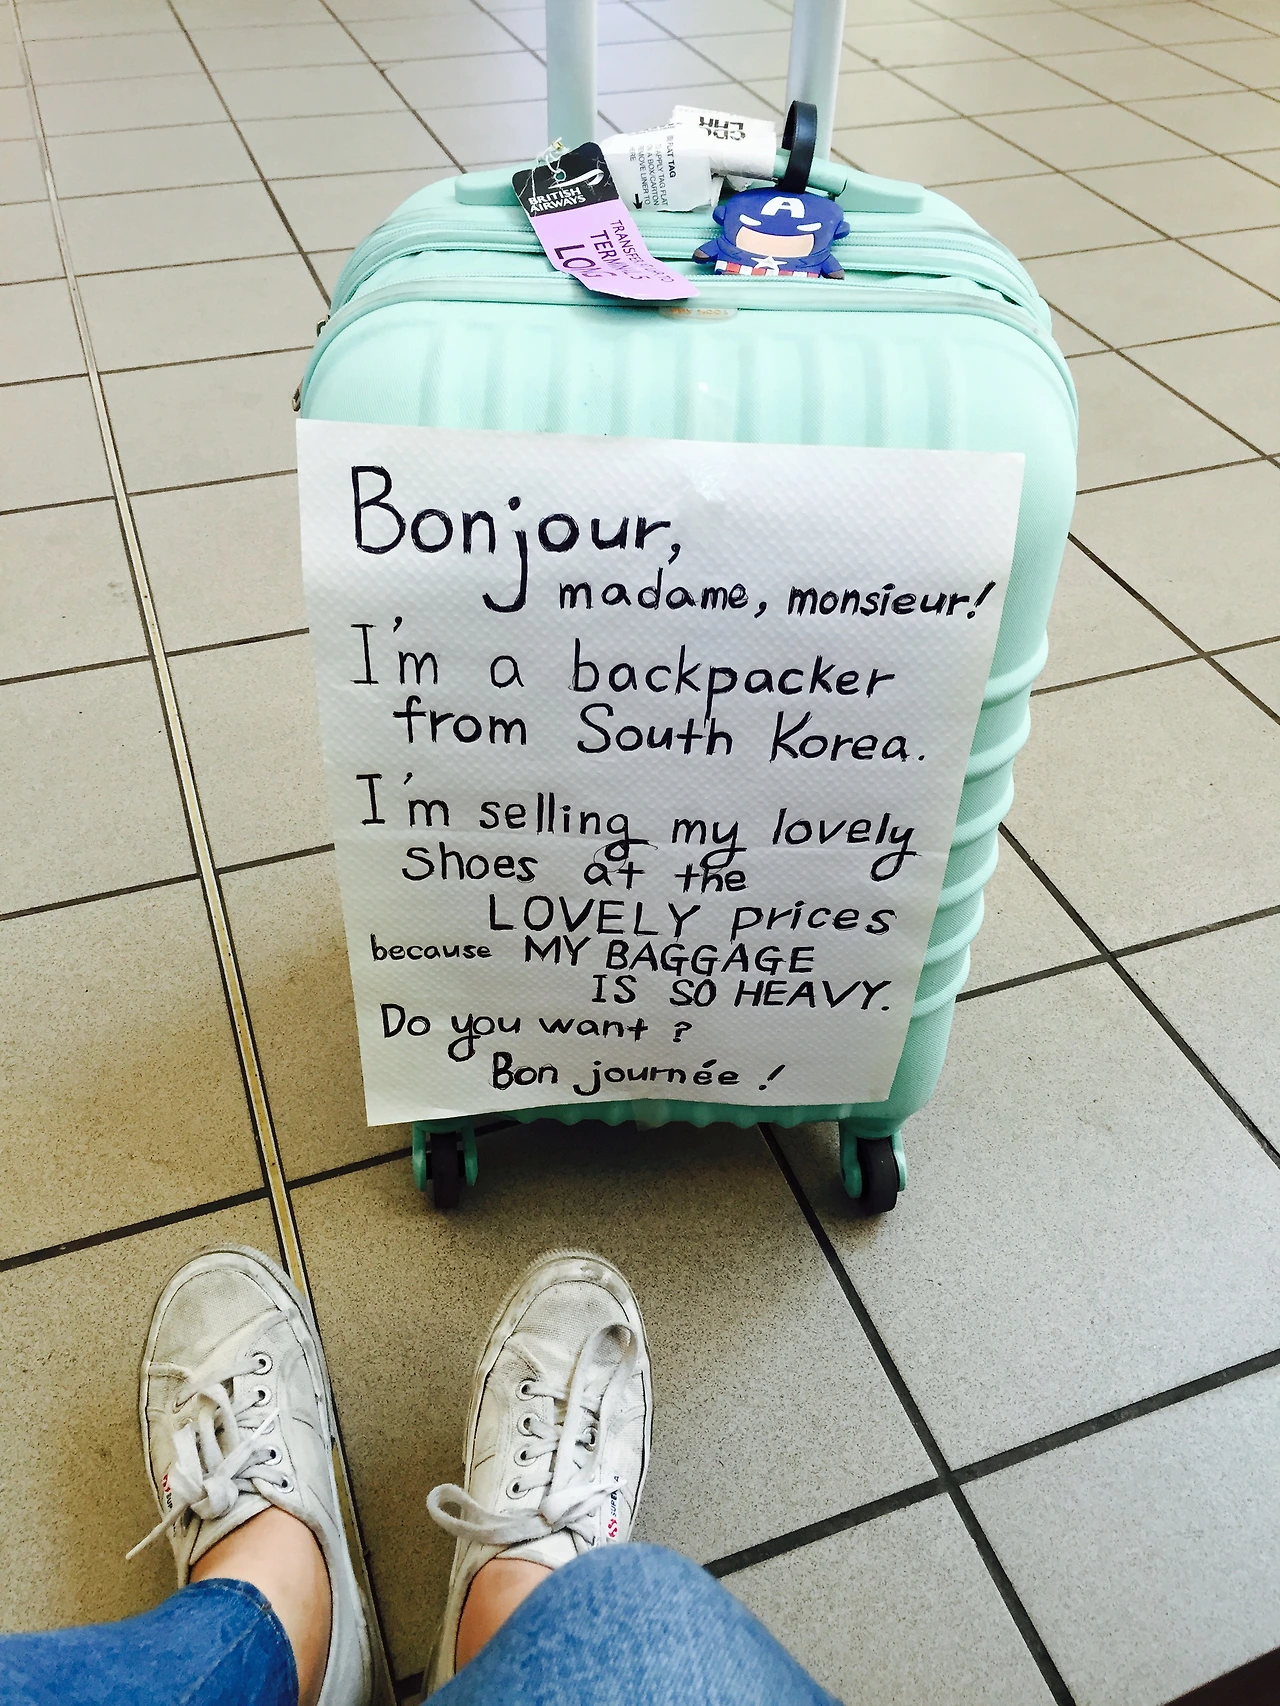 CDG
LHR
FLAT TAG
APPLY TAG FLAT
A BOX/CARTON
BRITISH
AIRWAYS
TERMINAL 5
A
Bonjour,
madame, monsieur!
I'm a backpacker
from South Korea.
I'm selling my lovely
shoes at the
LOVELY prices
because MY BAGGAGE
IS SO HEAVY.
Do you want ?
Bon journée !